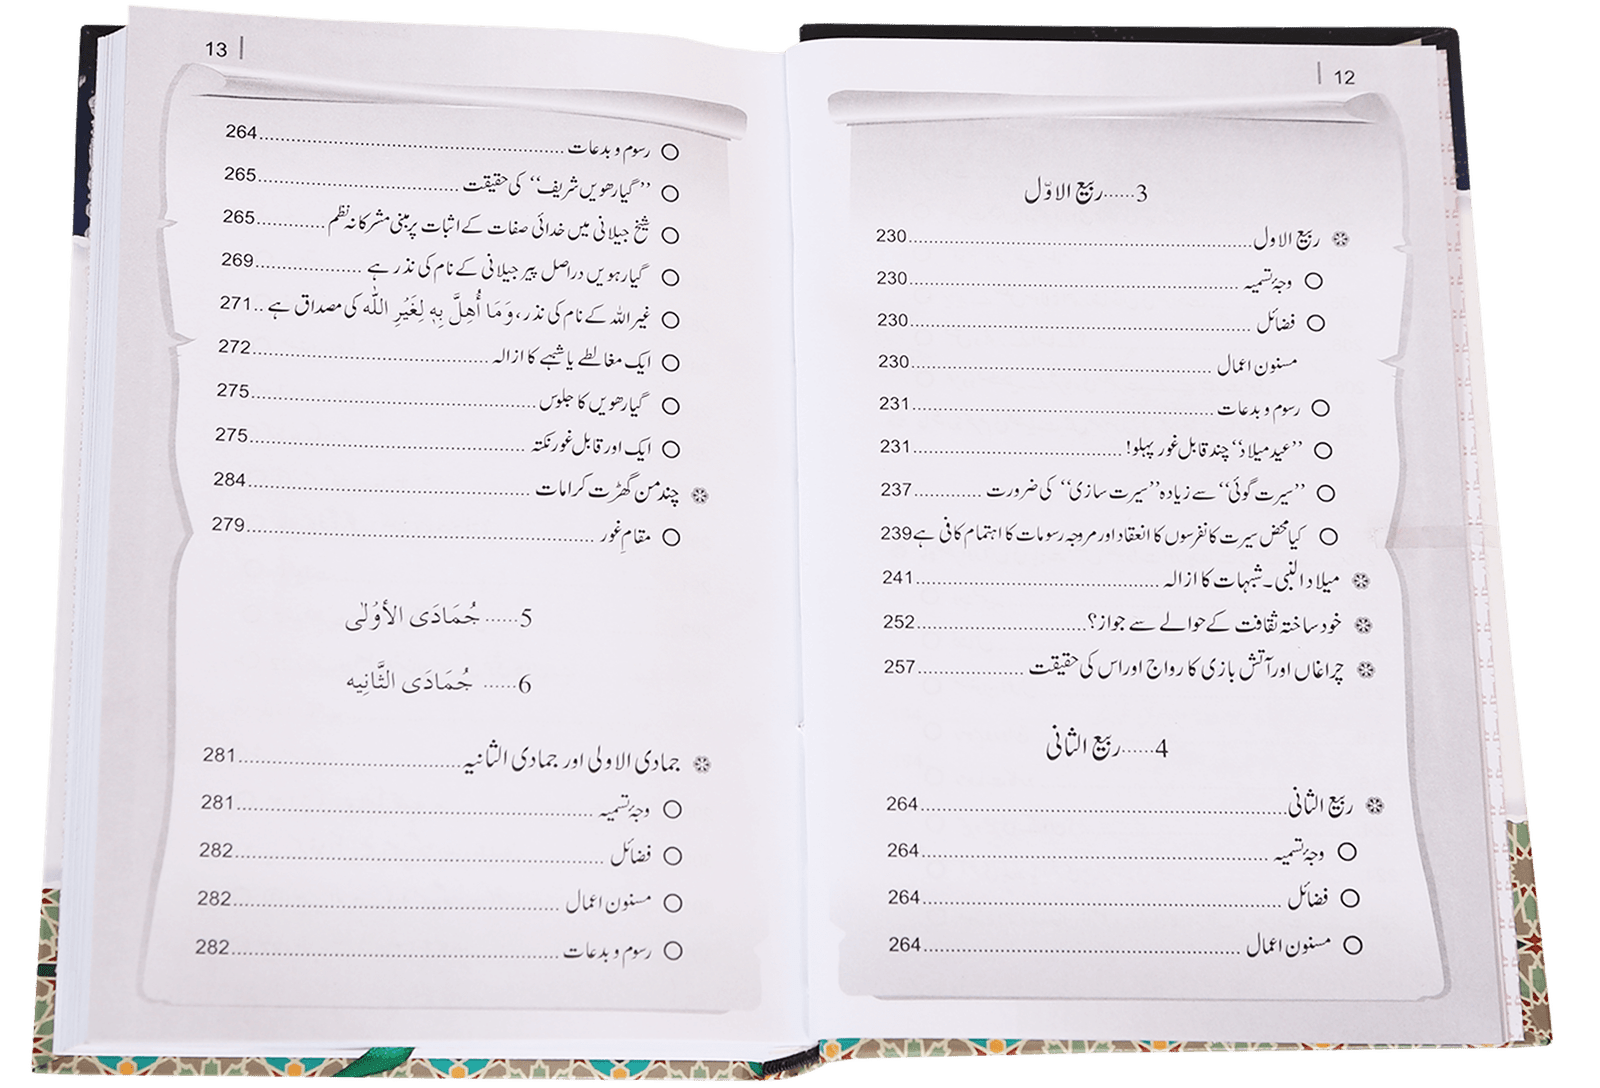 12
3......ربیع الاوّل
ربیع الاول......230
وجۂ تسمیہ......230
فضائل......230
مسنون اعمال......230
رسوم و بدعات......231
”عید میلاد“ چند قابل غور پہلو!......231
”سیرت گوئی“ سے زیادہ ”سیرت سازی“ کی ضرورت......237
کیا محض سیرت کانفرسوں کا انعقاد اور مروجہ رسومات کا اہتمام کافی ہے 239
میلاد النبی۔ شبہات کا ازالہ......241
خود ساختہ ثقافت کے حوالے سے جواز؟......252
چراغاں اور آتش بازی کا رواج اور اس کی حقیقت......257
4......ربیع الثانی
ربیع الثانی......264
وجۂ تسمیہ......264
فضائل......264
مسنون اعمال......264
13
رسوم و بدعات......264
”گیارھویں شریف“ کی حقیقت......265
شیخ جیلانی میں خدائی صفات کے اثبات پر مبنی مشرکانہ نظم......265
گیارہویں دراصل پیر جیلانی کے نام کی نذر ہے......269
غیر اللہ کے نام کی نذر، وَمَا أُهِلَّ بِهٖ لِغَيْرِ اللّٰه کی مصداق ہے..271
ایک مغالطے یا شبہے کا ازالہ......272
گیارھویں کا جلوس......275
ایک اور قابل غور نکتہ......275
چند من گھڑت کرامات......284
مقامِ غور......279
5......جُمَادَی الأوُلٰی
6......جُمَادَی الثَّانِیه
جمادی الاولی اور جمادی الثانیہ......281
وجۂ تسمیہ......281
فضائل......282
مسنون اعمال......282
رسوم و بدعات......282